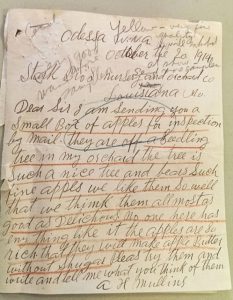 Odessa
Yellow
October the 20 1914
Stark Bro's Nursery and orchard Co
Louisiana Mo.
Dear Sir I am Sending you a
Small Box of apples for inspection
by Mail. They are off a seedling
tree in my orchard the tree is
Such a nice tree and bears Such
fine apples we like them So well
that we think them allmost as
good as Delicious. No one here has
any thing like it the apples are so
rich that they will make apple Butter
without Shugar Pleas try them and
write and tell me what you think of them
A H Mullins